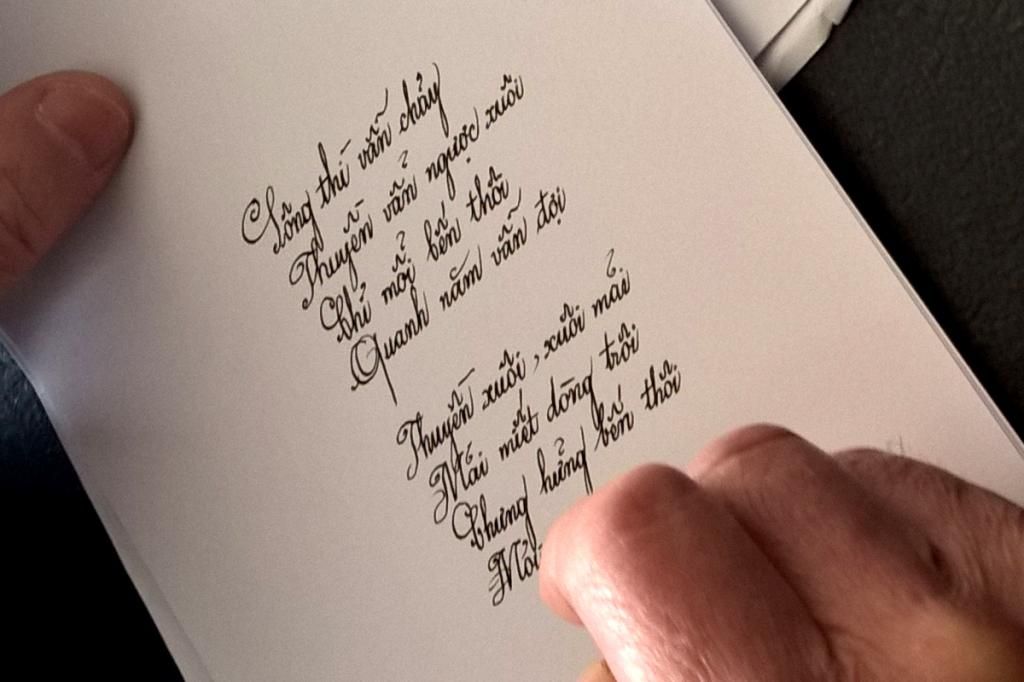 Sông thì vẫn chảy
Thuyền vẫn ngược xuôi
Chỉ mỗi bến thôi
Quanh năm vẫn đợi
Thuyền xuôi, xuôi mải
Mải miết dòng trôi
Chưng hửng bến thôi